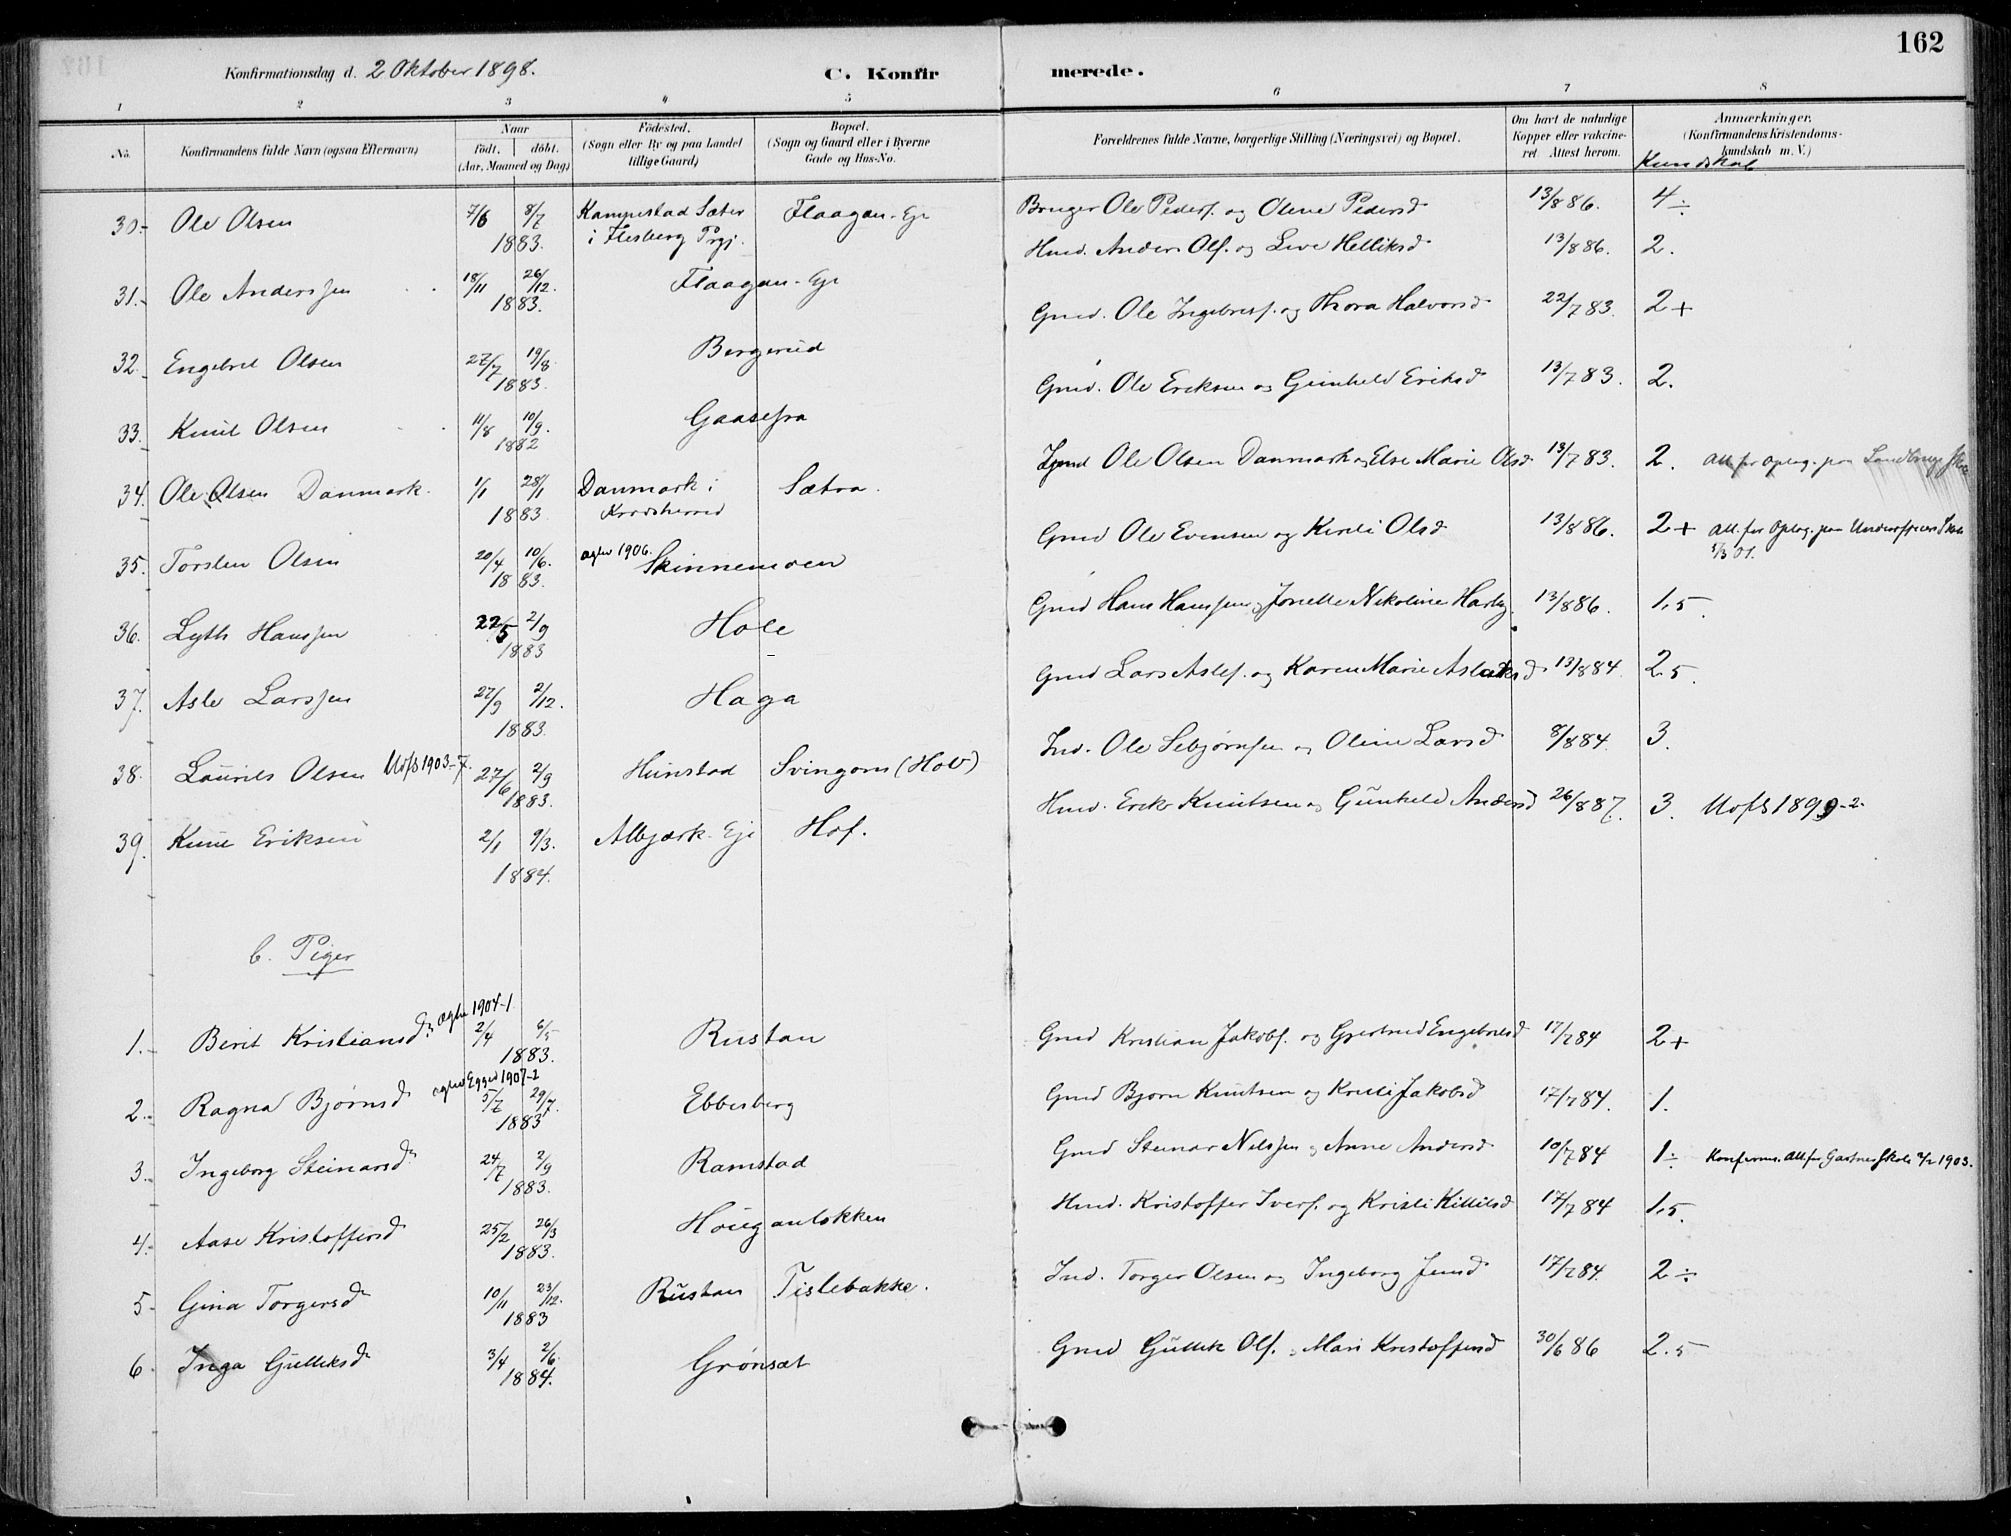 162
Konfirmationsdag d. 2 Oktober 1898.
C. Konfirmerede.
1 2 3 4 5 6 7 8
No. Konfirmandens fulde Navn (ogsaa Efternavn) Naar født, døbt. (Aar, Maaned og Dag) Fødested. (Sogn eller By og paa Landet tillige Gaard) Bopæl. (Sogn og Gaard eller i Byerne Gade og Hus-No. Forældrenes fulde Navne, borgerlige Stilling (Næringsvei) og Bopæl. Om havt de naturlige Kopper eller vakcineret Attest herom. Anmærkninger. (Konfirmandens Kristendomskundskab m. V.)
Kundskab
30. Ole Olsen 7/6 8/7 1883. Kampestad Sæter i Flesberg Prgj. Flaagan-Eje Bruger Ole Peders. og Oline Pedersd 13/8 86. 4 ÷
31. Ole Anderssen 18/11 26/12. 1883. Flaagan-Eje Hmd. Anders Ols. og Live Helliksd 13/8 86. 2.
32. Engebret Olsen 27/7 19/8 1883. Bergerud Gmd. Ole Ingebrets. og Thora Halvorsd 22/7 83. 2+
33. Knut Olsen 11/8 10/9. 1882 Gaasefra Gmd. Ole Eriksen og Gunhild Eriksd 13/7 83. 2.
34. Ole Olsen Danmark. 1/1 28/1 1883 Danmark i Krødsherred Sætra. Ole Olsen Danmark og Else Marie Olsd 13/7 83. 2. Att. for Optag. paa Landbrugs Skole
35. Torsten Olsen 20/4 10/6. 1883. ægtev 1906. Skinnemoen Gmd Ole Evensen og Kirsti Olsd 13/8 86. 2+ Att. for Optag. paa Underofficers Skole 1/3 01.
36. Lyth Hanssen 22/5 2/9 1883 Hole Gmd Hans Hanssen og Jonette Nikoline Harby. 13/8 86. 1.5
37. Asle Larssen 27/9 2/12. 1883. Haga Gmd Lars Asles. og Karen Marie Aslaksd 13/8 84. 2.5
38. Laurits Olsen Udfl 1903-7. 27/6 2/9 1883. Hunstad Svingom (Hov) Ind. Ole Sebjørnsen og Oline Larsd 8/8 84. 3.
39. Knut Eriksen 2/1 9/3. 1884. Albjærk. Eje Hof. Hmd. Erik Knutsen og Gunhild Andersd 26/8 87. 3. Udfl 1899-2.
b. Piger
1. Berit Kristiansd. ægtev 1904-1 2/4 6/5 1883. Rustan Gmd Kristian Jakobs. og Gjertrud Engebretsd 17/7 84 2+
2. Ragna Bjørnsd ægtev Egged 1907-2 5/7 29/7. 1883 Ebbesberg Gmd Bjørn Knutsen og Kristi Jakobsd 17/7 84. 1.
3. Ingeborg Steinarsd 24/7 2/9 1883. Ramstad Gmd Steinar Nilssen og Anne Andersd 10/7 84 1÷ Konfirm. Att. for Gartner Skole 1903.
4. Aase Kristoffersd 25/2 26/3 1883. Hauganløkken Hmd. Kristoffer Ivers. og Kristi Kittilsd 17/7 84 1.5.
5 Gina Torgersd 10/11 23/12. 1883 Rustan Tislebakke. Ind. Torger Olsen og Ingeborg Jensd 17/7 84. 2 ÷
6 Inga Gulliksd 3/4 2/6. 1884. Grønsæt Gmd Gullik Ols. og Mari Kristoffersd 30/6 86 2.5